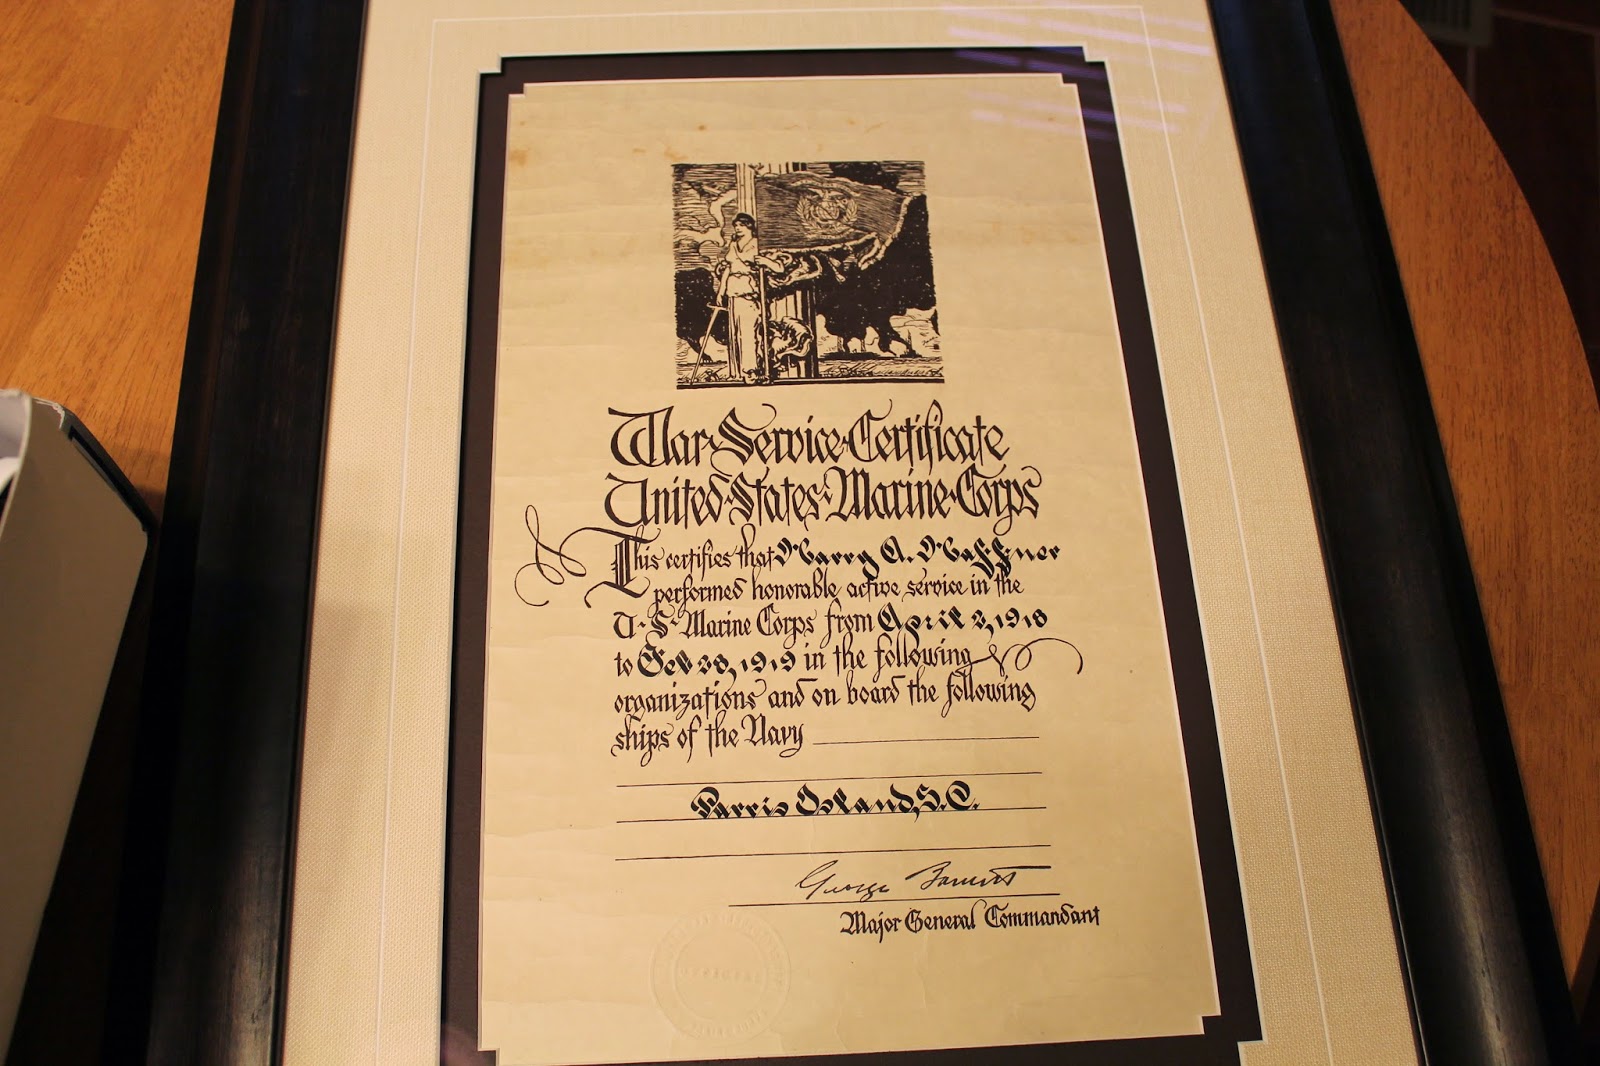 War Service Certificate
United States Marine Corps
This certifies that Harry A. Haffner
performed honorable active service in the
U. S. Marine Corps from April 2, 1918
to Feb 28, 1919 in the following
organizations and on board the following
ships of the Navy
Parris Island, S.C.
George Barnett
Major General Commandant